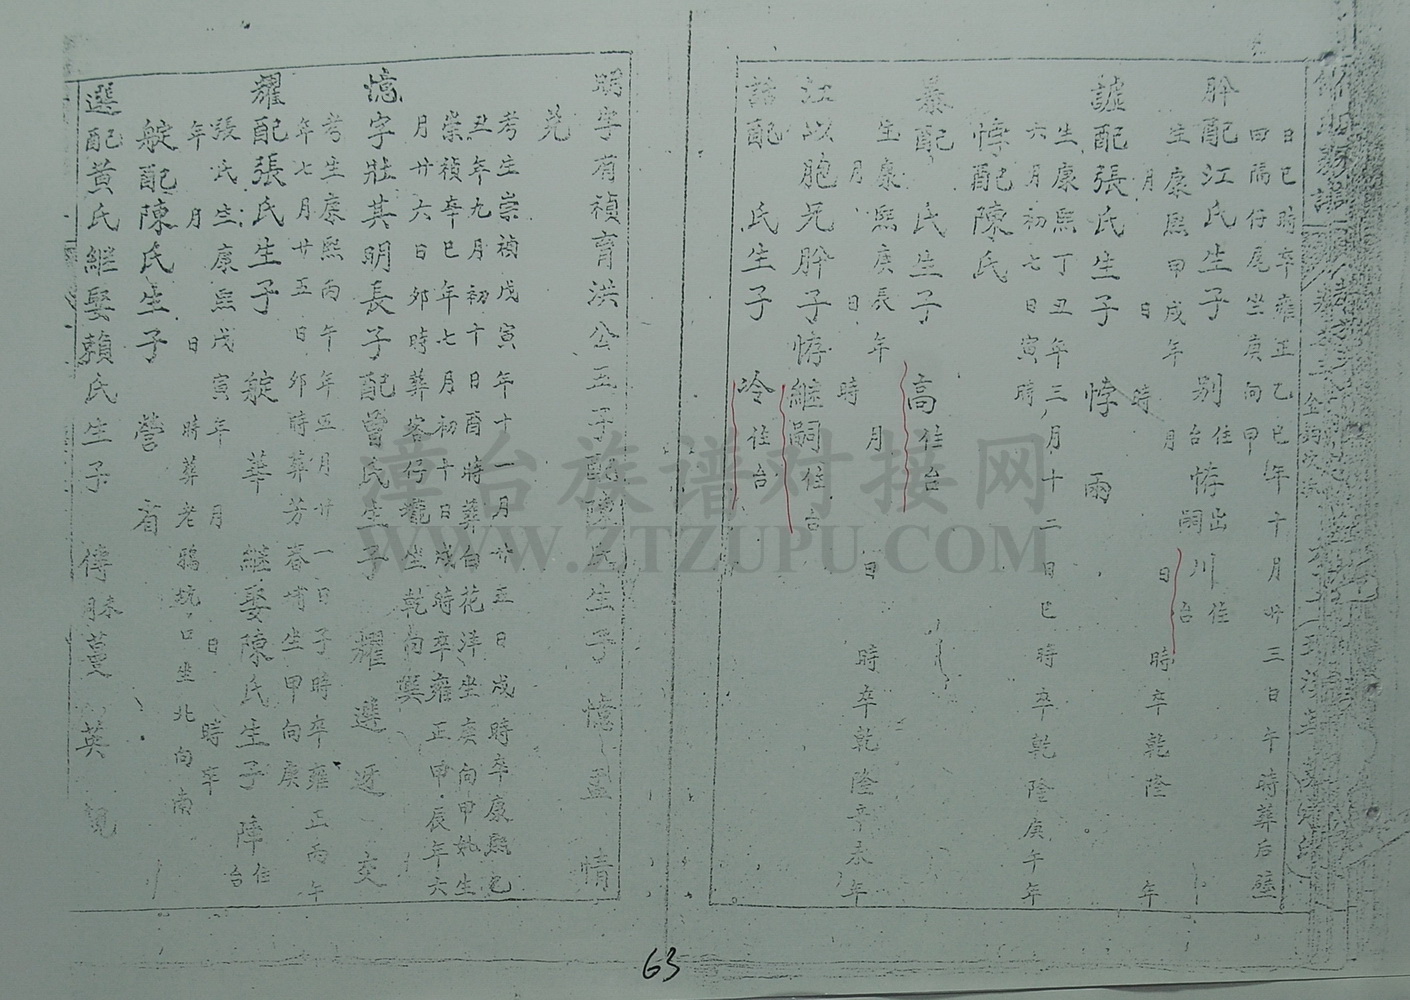 日巳時卒雍正乙巳年十月廿三日午時葬后壁
田隔仔尾坐庚向甲
肸配江氏生子 别住台 悖出嗣 川住台
生康熙甲戌年 月 日 時卒乾隆 年
月 日 時
謔配張氏生子 悖 雨
生康熙丁丑年三月十二日巳時卒乾隆庚午年
六月初七日寅時
悖配陳氏
暴配 氏生子 高住台
生康熙庚辰年 月 日 時卒乾隆辛未年
月 日 時
江以胞兄肸子悖継嗣住台
詰配 氏生子 冷住台
明字有禎育洪公五子配陳氏生子 憶 盈 情
羌
考生崇禎戊寅年十一月廿五日戌時卒康熙己
丑年九月初十日酉時葬白花洋坐庚向甲妣生
崇禎辛巳年七月初十日戌時卒雍正甲辰年六
月廿六日夘時葬客仔壠坐乾向巽
憶字壯其明長子配曾氏生子 耀 選 逐 交
耀配張氏生子 艇 華 継娶陳氏生子 障住台
考生康熙丙午年五月廿一日子時卒雍正丙午
年七月廿五日夘時葬芳春埔坐甲向庚
張氏生康熙戊寅年 月 日 時卒
年 月 日 時葬老鴉坑口坐北向南
艇配陳氏生子 營 省
選配黃氏継娶賴氏生子 傳 蔓 英
63
漳台族谱对接网
WWW.ZTZUPU.COM